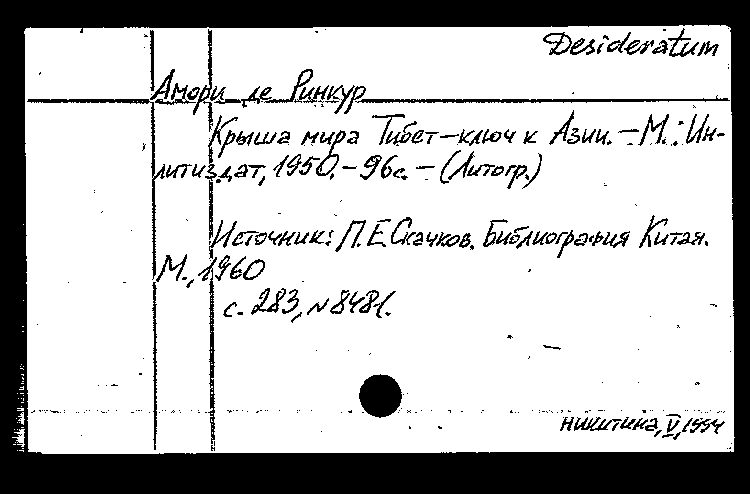 Desideratum
Амори де Ринкур
Крыша мира Тибет – ключ к Азии. – М.: Ин-
литиздат, 1950. – 96с. – (Литогр.)
Источник: П.Е.Скачков. Библиография Китая.
М., 1960
с. 283, № 8481.
никитина, V, 1994